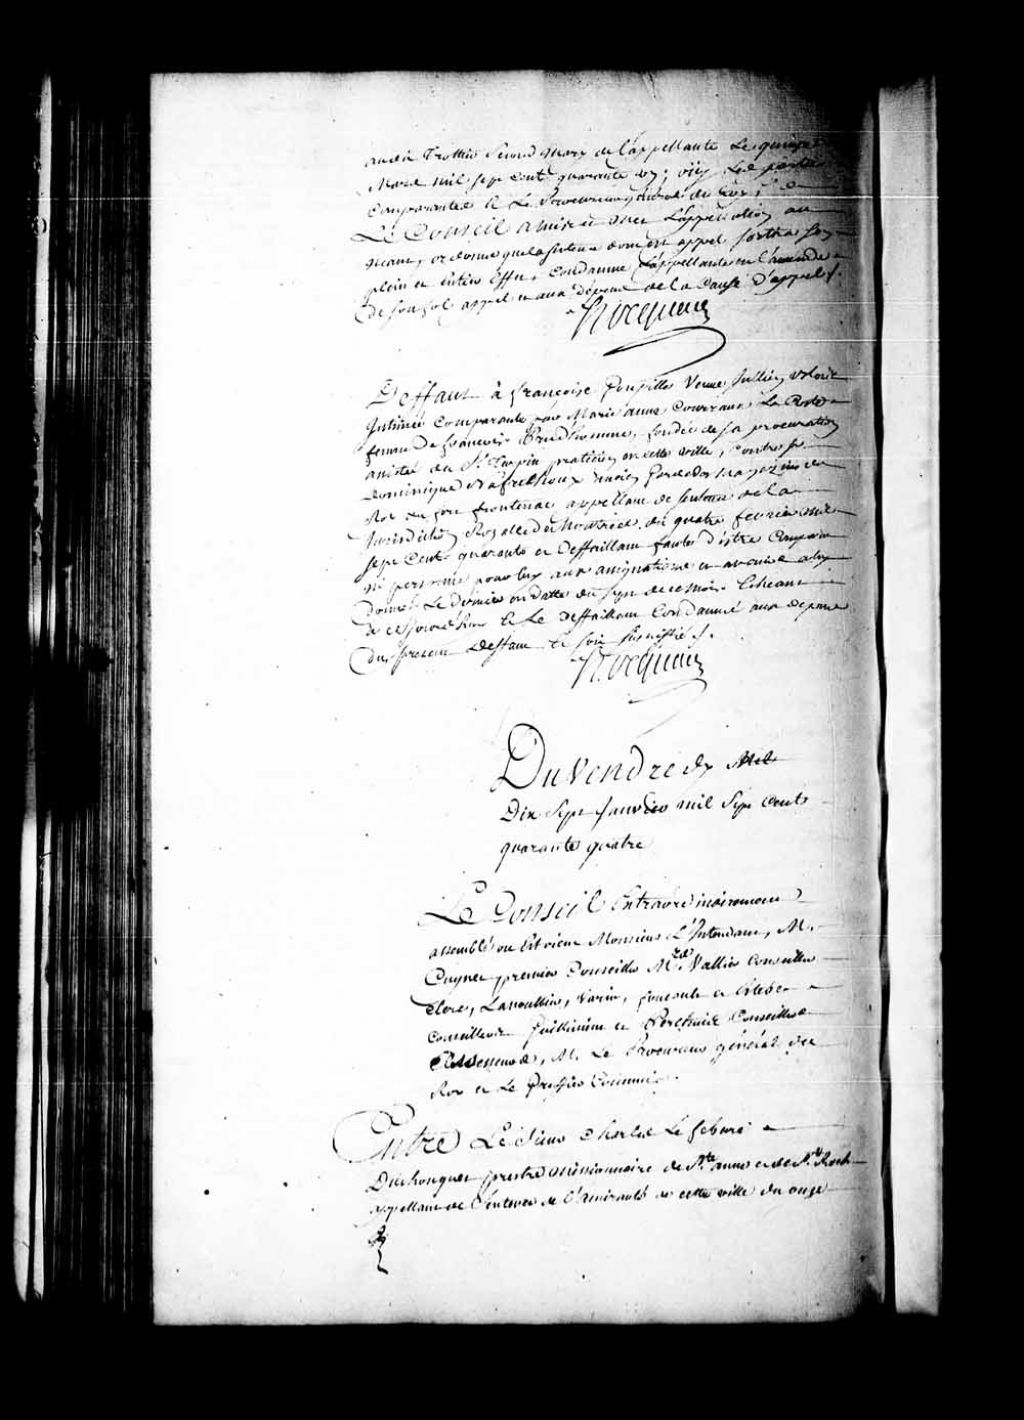 Trottier Second Mary de l'appellante Le quinze
Mars mil sept Cent quarante un; ouy Les parties
Comparantes et Le Procureur general du Roy;
Le Conseil a mis et met L'appellation au
neant, ordonne que la sentence dont est appel sortira son
plein et entier Effet, Condamne l'appellante en l'amende
de son fol appel et aux depens de la Cause d'appel /.
Hocquart
Deffaut à françoise Veuve Jullien
Intimée Comparante par Marie anne La
femme De françois Prudhomme, fondée de sa procuration
du Sr. Turpin praticien en cette ville, Contre Sr.
Dominique ancien garde des Magazins du
Roy au fort frontenac appellant de sentence de la
Jurisdiction Royalle de Montreal du quatre fevrier mil
sept Cent quarante et Deffaillant faute d'être Comparu
ni personne pour luy aux assignations et avenir a luy
donnés Le dernier en datte du sept de ce mois Echeant
a ce jourd'huy et Le deffaillant Condamné aux depens
du present deffaut et soit signiffié /.
Hocquart
Du Vendredy
Dix Sept Janvier mil Sept Cent
quarante quatre
Le Conseil Extraordinairement
assemblé ou Etoient Monsieur L'Intendant, M.
Cugnet premier Conseiller Mes. Vallier Conseiller
Clerc, Lanoullier, Varin, foucault et Estebe
Conseillers Guillimin et Conseillers
assesseurs, M. Le Procureur général du
Roy et Le Greffier Commis.
Entre Le Sieur Charles Le febure
Duchouquet prestre missionnaire de Ste. anne et de St. Roch
appellant de Sentence de l'amirauté de cette ville du onze